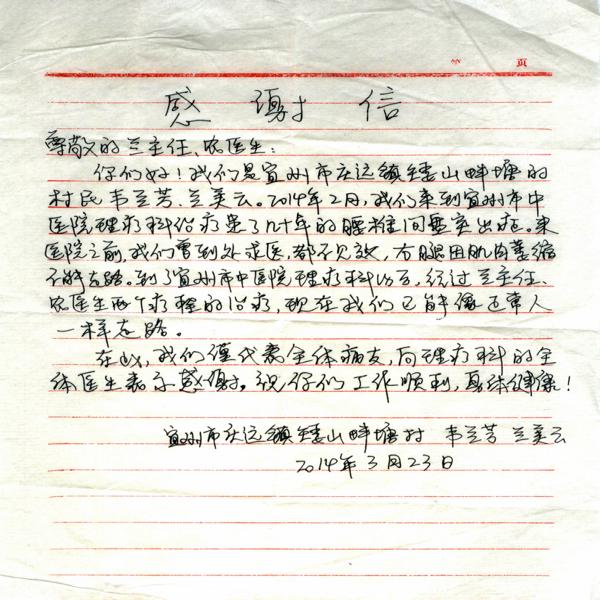 第 页
感谢信
尊敬的兰主任、农医生:
你们好!我们是宜州市庆远镇矮山畔塘的
村民韦兰芳、兰美云。2014年2月,我们来到宜州市中
医院理疗科治疗患了几十年的腰椎间盘突出症。来
医院之前,我们曾到处求医,都不见效,右腿因肌肉萎缩
不能走路。到了宜州市中医院理疗科以后,经过兰主任、
农医生两个疗程的治疗,现在我们已能像正常人
一样走路。
在此,我们谨代表全体病友,向理疗科的全
体医生表示感谢。祝你们工作顺利,身体健康!
宜州市庆远镇矮山畔塘村 韦兰芳 兰美云
2014年3月23日